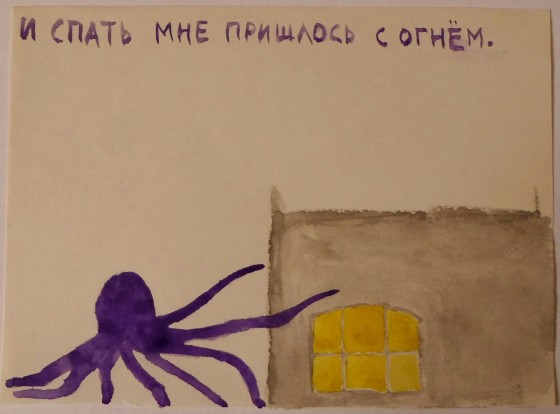 И СПАТЬ МНЕ ПРИШЛОСЬ С ОГНЁМ.